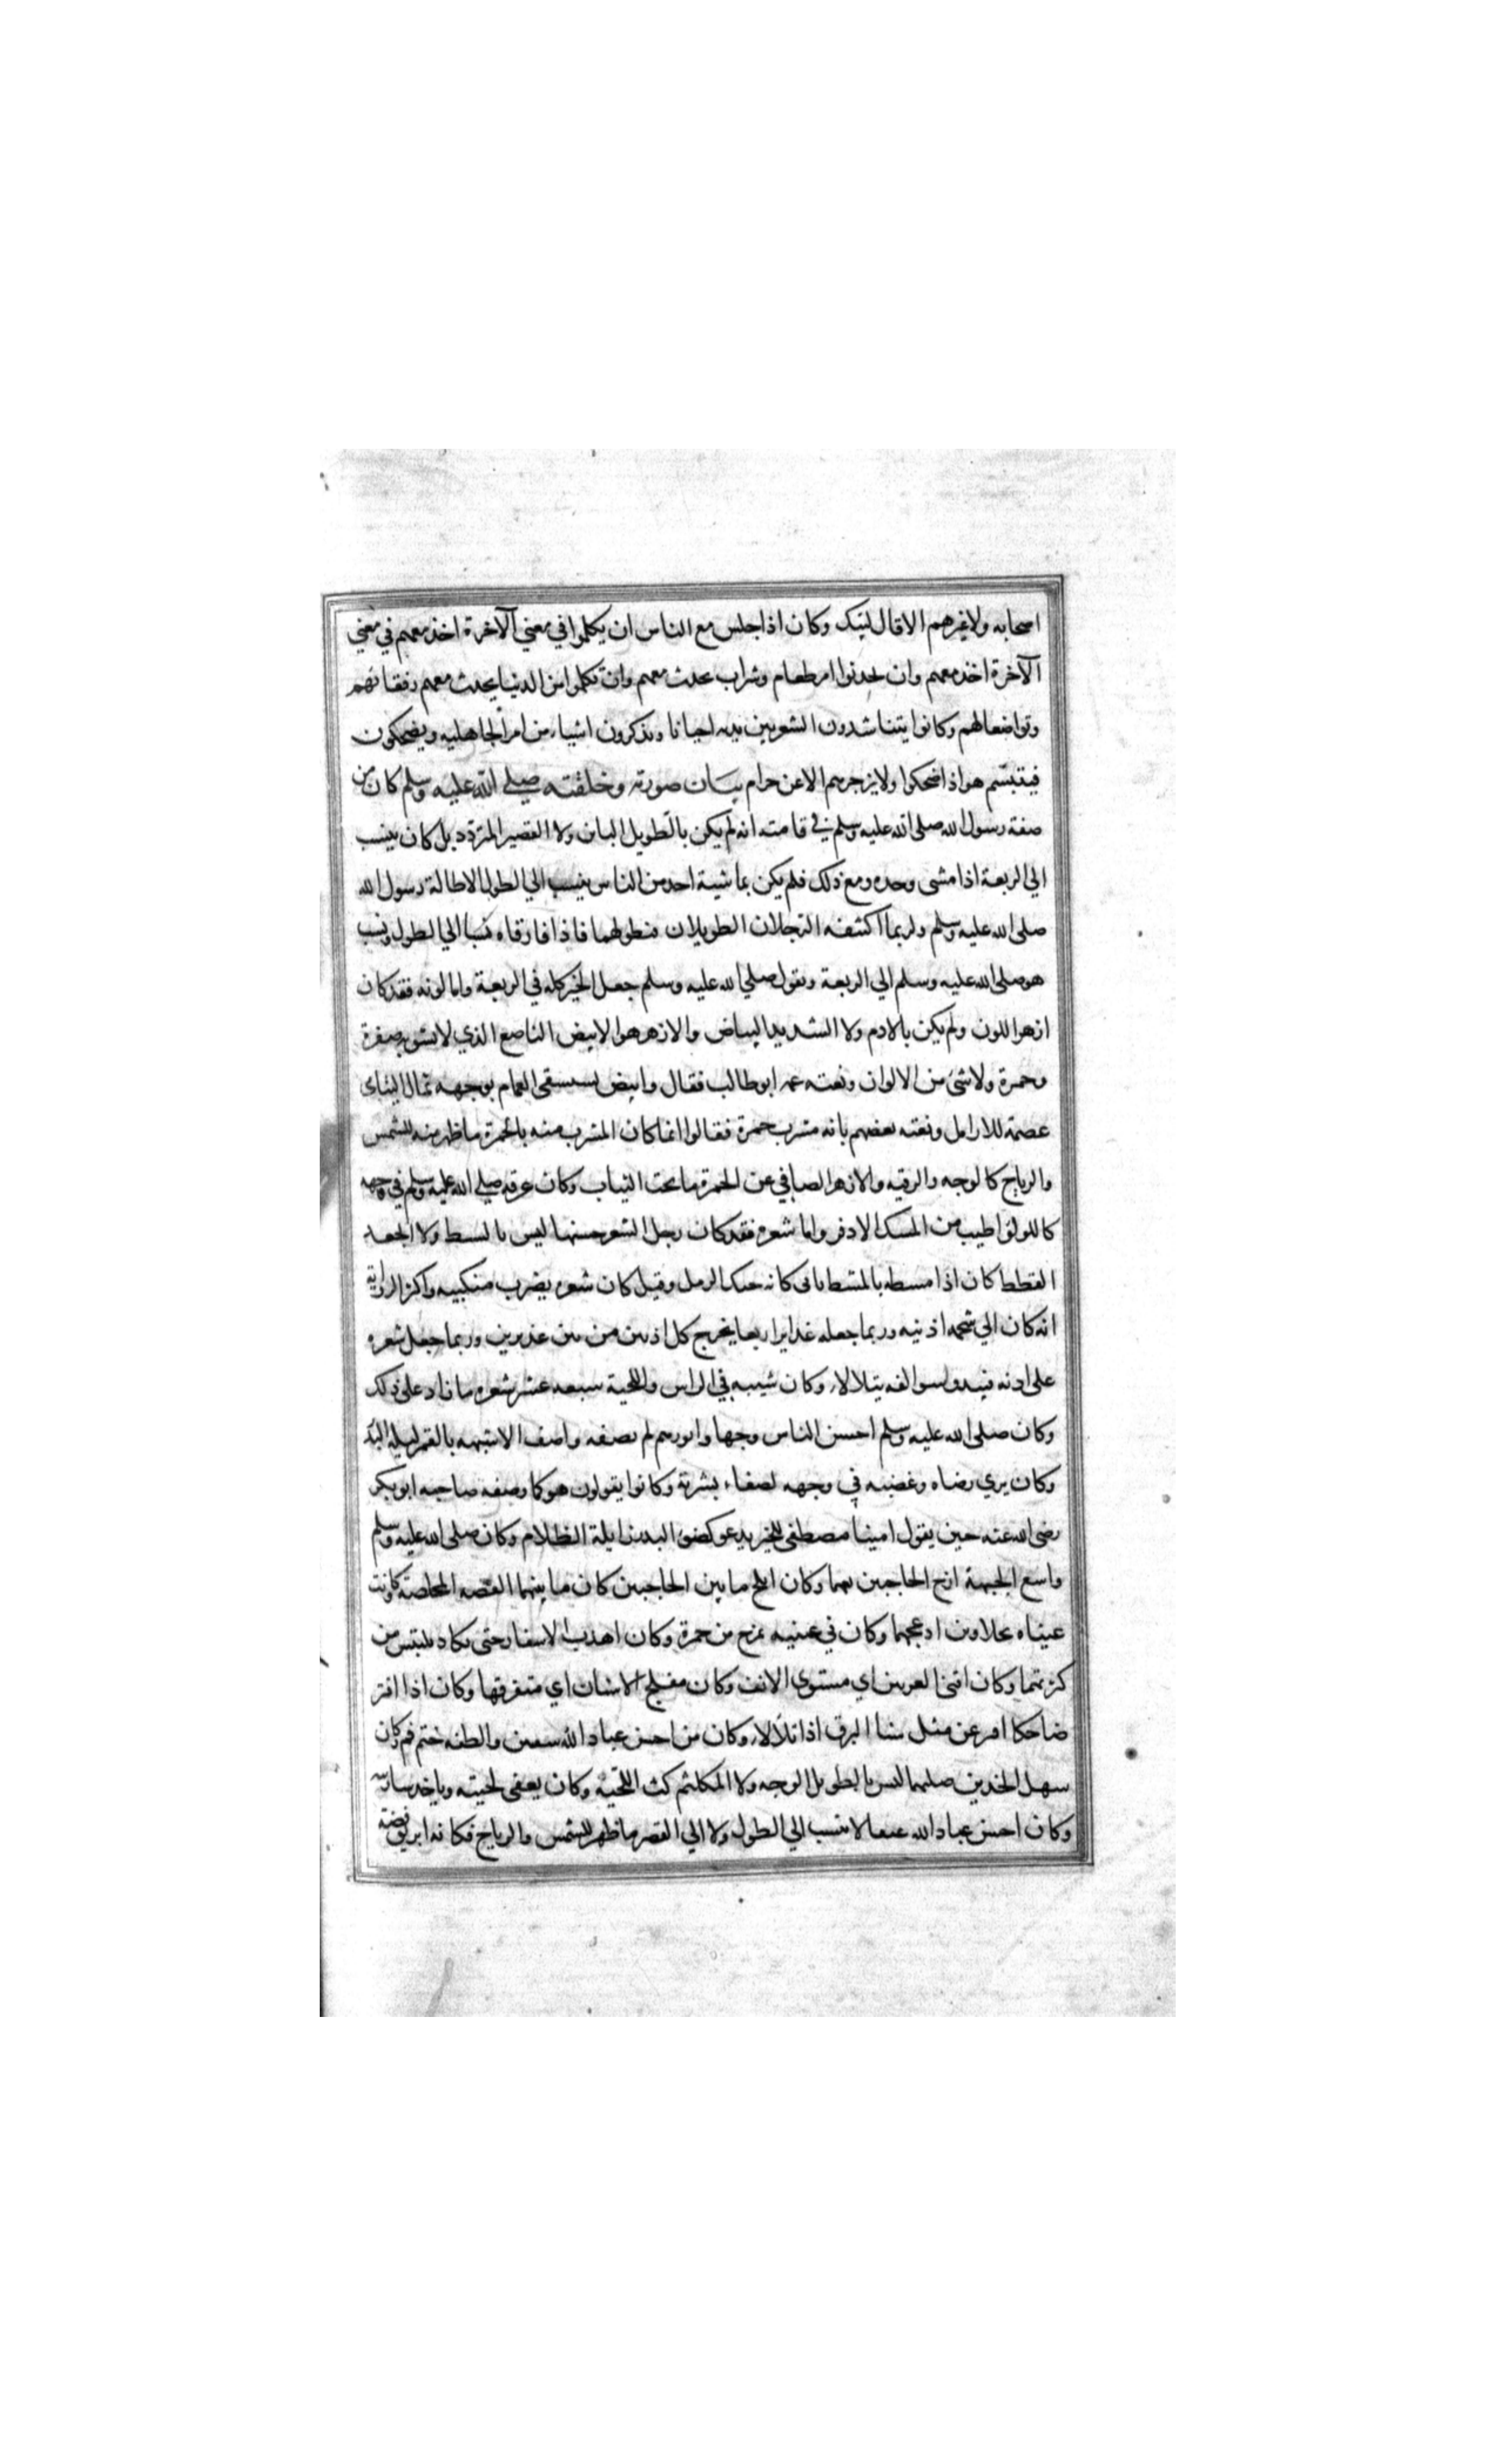 اصحابه ولا غيرهم الا قال لبيك وكان اذا جلس مع الناس ان يكلموا في معني الآخرة اخذ معهم في معني
الآخرة اخذ معهم وان تحدثوا امر طعام وشراب تحدث معهم وان تكلموا من الدنيا يحدث معهم رفقا بهم
وتواضعا لهم وكانوا يتناشدون الشعر بين يديه احيانا ويذكرون اشياء من امر الجاهلية ويضحكون
فيتبسّم هو اذا ضحكوا ولا يزجرهم الا عن حرام بيان صورته وخلقته صلي الله عليه وسلم كان من
صفة رسول الله صلى الله عليه وسلم في قامته انه لم يكن بالطويل البائن ولا القصير المتردد بل كان ينسب
الي الربعة اذا مشى وحده ومع ذلك فلم يكن يماشيه احد من الناس ينسب الي الطول الا طاله رسول الله
صلى الله عليه وسلم ولربما اكشفه الرجلان الطويلان فيطولهما فاذا فارقاه نسبا الي الطول ونسب
هو صلى الله عليه وسلم الي الربعة ويقول صلي الله عليه وسلم جعل الخير كله في الربعة واما لونه فقد كان
ازهر اللون ولم يكن بالادم ولا الشديد البياض والازهر هو الابيض الناصع الذي لا يشوبه صفرة
وحمرة ولا شئ من الالوان ونعته عمه ابو طالب فقال وابيض يستسقى الغمام بوجهه ثمال اليتامى
عصمة للارامل ونعته بعضهم بانه مشرب حمرة فقالوا انما كان المشرب منه بالحمرة ما ظهر منه للشمس
والرياح كالوجه والرقبه والازهر الصافي عن الحمرة ما تحت الثياب وكان عرقه صلي الله عليه وسلم في وجهه
كاللولؤ اطيب من المسك الاذفر واما شعره فقد كان رجل الشعر حسنها ليس بالسبط ولا الجعد
القطط كان اذا مسطه بالمشط ياتى كانه حبك الرمل وقيل كان شعره يضرب منكبيه واكثر الرواية
انه كان الي شحمه اذنيه وربما جعله غدايرا ربعا يخرج كل اذنين من بين غديرين وربما جعل شعره
على اذنه فيبدو سوالفه يتلالاء وكان شيبه في الراس واللحية سبعه عشر شعره ما زاد على ذلك
وكان صلى الله عليه وسلم احسن الناس وجها وانورهم لم يصفه واصف الا شبهه بالقمر ليلة البدر
وكان يري رضاه وغضبه في وجهه لصفاء بشرته وكانوا يقولون هو كما وصفه صاحبه ابو بكر
رضى الله عنه حين يقول امينا مصطفى للخير يدعو كضوء البدر زايلة الظلام وكان صلى الله عليه وسلم
واسع الجبهة ازج الحاجبين وكان ابلج ما بين الحاجبين كان ما بينهما الفضه المخلصة وكانت
عيناه نجلاوين ادعجهما وكان في عينيه تمزج من حمرة وكان اهدب الاشفار حتى تكاد تلتبس من
كثرتها وكان اقنى العرنين اي مستوي الانف وكان مفلج الاسنان اي متفرقها وكان اذا افتر
ضاحكا افتر عن مثل سنا البرق اذا تلالاء وكان من احسن عباد الله شفتين والطفه ختم فم وكان
سهل الخدين صلبهما ليس بالطويل الوجه ولا المكلثم كث اللحية وكان يعفى لحيته وياخذ شاربه
وكان احسن عباد الله عنقا لا ينسب الي الطول ولا الي القصر ما ظهر للشمس والرياح فكانه ابريق فضة